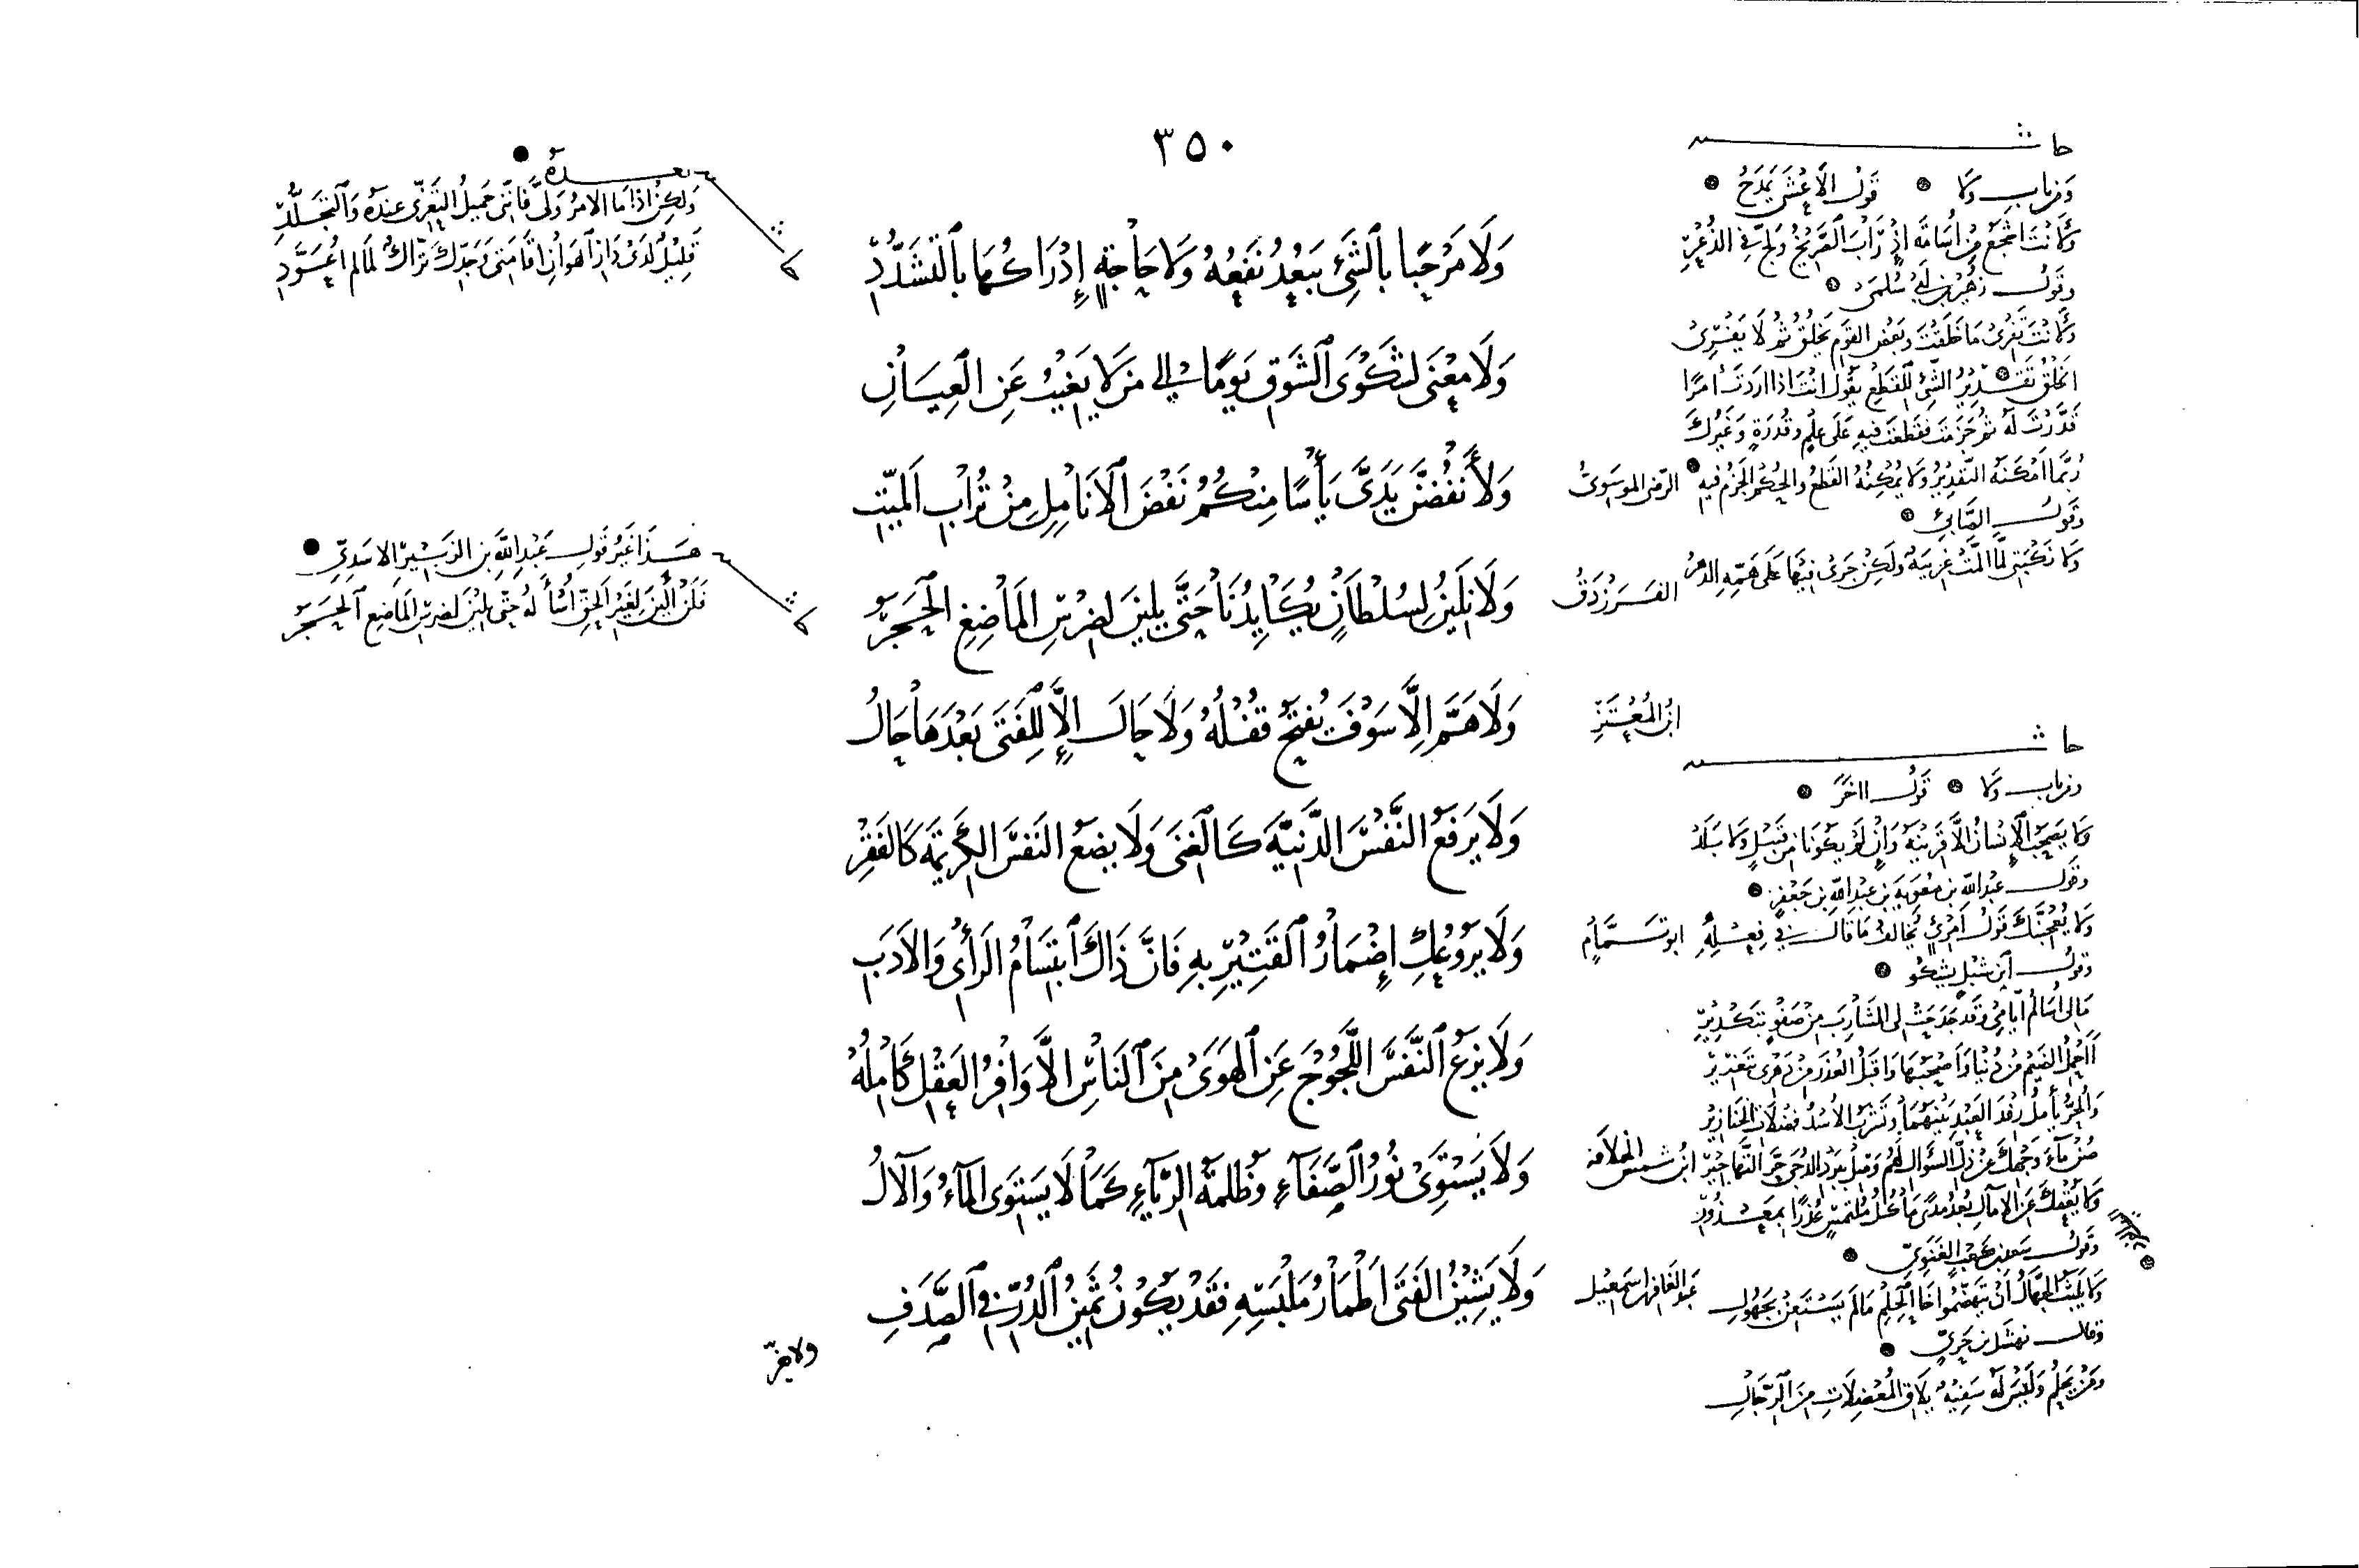 ٣٥٠
وَلَا مَرْحَبًا بِالشَّيْءِ يَبْعُدُ نَفْعُهُ وَلَا حَاجَةٍ إِدْرَاكُهَا بِالتَّشَدُّدِ
وَلَا مَعْنَى لِشَكْوَى الشَّوْقِ يَوْمًا إِلَى مَنْ لَا يَغِيبُ عَنِ الْعِيَانِ
وَلَأَنْفُضَنَّ يَدَيَّ يَأْسًا مِنْكُمُ نَفْضَ الْأَنَامِلِ مِنْ تُرَابِ الْمَيِّتِ
وَلَا نَلِينُ لِسُلْطَانٍ يُكَايِدُنَا حَتَّى يَلِينَ لِضِرْسِ الْمَاضِغِ الْحَجَرُ
وَلَا هَمَّ إِلَّا سَوْفَ يُفْتَحُ قُفْلُهُ وَلَا حَالَ إِلَّا لِلْفَتَى بَعْدَهَا حَالُ
وَلَا يَرْفَعُ النَّفْسَ الدَّنِيَّةَ كَالْغِنَى وَلَا يَضَعُ النَّفْسَ الْكَرِيمَةَ كَالْفَقْرِ
وَلَا يَرُوعُكِ إِضْمَارُ الْقَتِيرِ بِهِ فَإِنَّ ذَاكَ ابْتِسَامُ الرَّأْيِ وَالْأَدَبِ
وَلَا يَزَعُ النَّفْسَ اللَّجُوجَ عَنِ الْهَوَى مِنَ النَّاسِ إِلَّا وَافِرُ الْعَقْلِ كَامِلُهْ
وَلَا يَسْتَوِي نُورُ الصَّفَاءِ وَظُلْمَةُ الرِّيَاءِ كَمَا لَا يَسْتَوِي الْمَاءُ وَالْآلُ
وَلَا يَشِينُ الْفَتَى أَطْمَارُ مَلْبَسِهِ فَقَدْ يَكُونُ ثَمِينُ الدُّرِّ فِي الصَّدَفِ
ولا يغرّ
الرضى الموسوى
الفرزدق
ابن المعتز
ابو تمام
ابن شمس الخلافة
حاشـ
ومن باب ولا قول الأعشى يمدح
ولأنت أشجع من أسامة إذ راب الصريخ ولج في الذعر
وقول زهير بن أبي سلمى
ولأنت تفري ما خلقت وبعض القوم يخلق ثم لا يفري
الخلق تقدير الشيء للقطع يقول أنت إذا أردت أمرا
قدرت له ثم حزمت فقطعت فيه على علم وقدرة وغيرك
ربما أمكنه التقدير ولا يمكنه القطع والحكم الجزم فيه
وقول الصابئ
ولا نكبتي لما ألمت غريبة ولكن جرى فيها على همه الدهر
حاشـ
ومن باب ولا قول اخر
ولا يصحب الإنسان إلا قرينه وإن لم يكونا من قبيل ولا بلد
وقول عبد الله بن معوية بن عبد الله بن جعفر
ولا يعجبنك قول امرئ يخالف ما قال في فعله
وقول ابن شبل يشكو
مالي أسالم أيامي وقد جدحت لي الشارب من صفو بتكدير
أأحمل الضيم من دنيا وأصحبها وأقبل العذر من دهري بتعذير
وقول سعد بن كعب الغنوي
ولا يلبث الجهال أن يتهضموا أخا الحلم ما لم يستعن بجهول
وقال نهشل بن حري
ومن يحلم وليس له سفيه يلاق المعضلات من الرجال
بعده
ولكن إذا ما الأمر ولى فإنني جميل التعزي عنده والتجلد
قليل لدى دار الهوان إقامتي وجدك تراك لما لم أعود
هذا غير قول عبد الله بن الزبير الأسدي
فلن ألين لغير الحق أسأله حتى يلين لضرس الماضغ الحجر